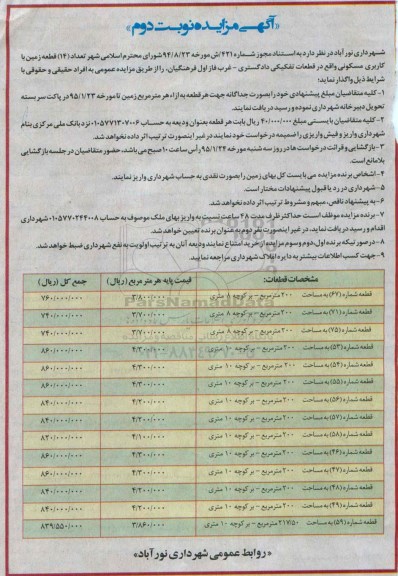 «آگهی مزایده نوبت دوم»
شهرداری نورآباد در نظر دارد به استناد مجوز شماره ۴۲۱/ش مورخه ۹۴/۸/۲۳ شورای محترم اسلامی شهر تعداد (۱۴) قطعه زمین با
کاربری مسکونی واقع در قطعات تفکیکی دادگستری - غرب فاز اول فرهنگیان، را از طریق مزایده عمومی به افراد حقیقی و حقوقی با
شرایط ذیل واگذار نماید؛
۱- کلیه متقاضیان مبلغ پیشنهادی خود را بصورت جداگانه جهت هر قطعه به ازاء هر مترمربع زمین تا مورخه ۹۵/۱/۲۳ در پاکت سر بسته
تحویل دبیرخانه شهرداری نموده و رسید دریافت نمایند.
۲- کلیه متقاضیان با یستی مبلغ ۴۰/۰۰۰/۰۰۰ ریال بابت هر قطعه بعنوان ودیعه به حساب ۰۱۰۵۷۷۱۳۰۷۰۰۶ نزد بانک ملی مرکزی بنام
شهرداری واریز و فیش واریزی را ضمیمه درخواست خود نمایند در غیر اینصورت ترتیب اثر داده نخواهد شد.
۳- بازگشایی و قرائت درخواست ها در روز سه شنبه مورخه ۹۵/۱/۲۴ رأس ساعت ۱۰ صبح می باشد، حضور متقاضیان در جلسه بازگشایی
بلامانع است.
۴- اشخاص برنده مزایده می بایست کل بهای زمین را بصورت نقدی به حساب شهرداری واریز نمایند.
۵- شهرداری در رد یا قبول پیشنهادات مختار است.
۶- به پیشنهاد ناقص، مبهم و مشروط ترتیب اثر داده نخواهد شد.
۷- برنده مزایده موظف است حداکثر ظرف مدت ۴۸ ساعت نسبت به واریز بهای ملک موصوف به حساب ۰۱۰۵۷۷۰۲۴۴۰۰۸ شهرداری
اقدام و رسید دریافت نماید، در غیر اینصورت نفر دوم به عنوان برنده تعیین خواهد شد.
۸- در صورتیکه برنده اول، دوم و سوم مزایده از خرید امتناع نمایند ودیعه آنان به ترتیب اولویت به نفع شهرداری ضبط خواهد شد.
۹- جهت کسب اطلاعات بیشتر به دایره املاک شهرداری مراجعه نمایید.
مشخصات قطعات: قیمت پایه هر متر مربع (ریال) جمع کل (ریال)
قطعه شماره (۶۷) به مساحت ۲۰۰ مترمربع - بر کوچه ۸ متری ۳/۸۰۰/۰۰۰ ۷۶۰/۰۰۰/۰۰۰
قطعه شماره (۷۱) به مساحت ۲۰۰ مترمربع - بر کوچه ۸ متری ۳/۷۰۰/۰۰۰ ۷۴۰/۰۰۰/۰۰۰
قطعه شماره (۷۵) به مساحت ۲۰۰ مترمربع - بر کوچه ۸ متری ۳/۷۰۰/۰۰۰ ۷۴۰/۰۰۰/۰۰۰
قطعه شماره (۵۳) به مساحت ۲۰۰ مترمربع - بر کوچه ۱۰ متری ۴/۳۰۰/۰۰۰ ۸۶۰/۰۰۰/۰۰۰
قطعه شماره (۵۴) به مساحت ۲۰۰ مترمربع - بر کوچه ۱۰ متری ۴/۳۰۰/۰۰۰ ۸۶۰/۰۰۰/۰۰۰
قطعه شماره (۵۵) به مساحت ۲۰۰ مترمربع - بر کوچه ۱۰ متری ۴/۳۰۰/۰۰۰ ۸۶۰/۰۰۰/۰۰۰
قطعه شماره (۵۶) به مساحت ۲۰۰ مترمربع - بر کوچه ۱۰ متری ۴/۲۰۰/۰۰۰ ۸۴۰/۰۰۰/۰۰۰
قطعه شماره (۵۷) به مساحت ۲۰۰ مترمربع - بر کوچه ۱۰ متری ۴/۲۰۰/۰۰۰ ۸۴۰/۰۰۰/۰۰۰
قطعه شماره (۵۸) به مساحت ۲۰۰ مترمربع - بر کوچه ۱۰ متری ۴/۱۰۰/۰۰۰ ۸۲۰/۰۰۰/۰۰۰
قطعه شماره (۴۶) به مساحت ۲۰۰ مترمربع - بر کوچه ۱۰ متری ۴/۳۰۰/۰۰۰ ۸۶۰/۰۰۰/۰۰۰
قطعه شماره (۴۷) به مساحت ۲۰۰ مترمربع - بر کوچه ۱۰ متری ۴/۳۰۰/۰۰۰ ۸۶۰/۰۰۰/۰۰۰
قطعه شماره (۴۸) به مساحت ۲۰۰ مترمربع - بر کوچه ۱۰ متری ۴/۲۰۰/۰۰۰ ۸۴۰/۰۰۰/۰۰۰
قطعه شماره (۴۹) به مساحت ۲۰۰ مترمربع - بر کوچه ۱۰ متری ۴/۲۰۰/۰۰۰ ۸۴۰/۰۰۰/۰۰۰
قطعه شماره (۵۹) به مساحت ۲۱۷/۵۰ مترمربع - بر کوچه ۱۰ متری ۳/۸۶۰/۰۰۰ ۸۳۹/۵۵۰/۰۰۰
«روابط عمومی شهرداری نورآباد»